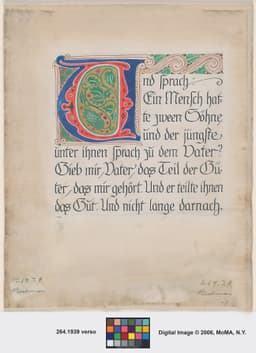 Und sprach:
Ein Mensch hat
te zween Söhne
und der jüngste
unter ihnen sprach zu dem Vater:
Gieb mir, Vater, das Teil der Gü
ter, das mir gehört. Und er teilte ihnen
das Gut. Und nicht lange darnach,
264.1939 verso
Digital Image © 2006, MoMA, N.Y.